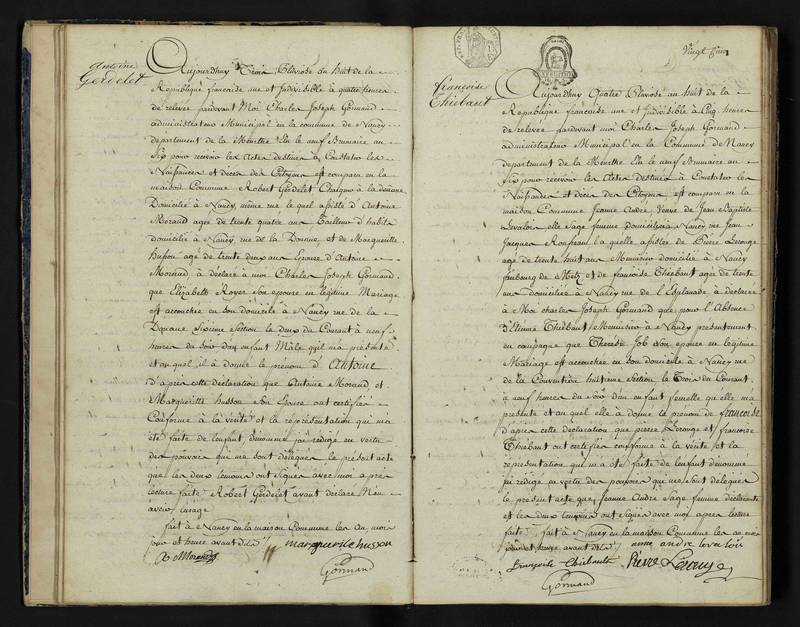 Antoine
Gerdelet
Aujourdhuy Trois Pluviose au huit de la
République francoise une et Indivisible à quatre heures
de relevée pardevant Moi Charles Joseph Gormand
administrateur Municipal en la commune de Nancy
departement de la Meurthe Elu le neuf Brumaire an
Six pour recevoir les Actes destinés à Constater les
Naissances et décés des Citoyens est comparu en la
maison Commune Robert Gerdelet Chargeur à la douane
Domicilié à Nancy même rue le quel assisté d'Antoine
Morand agé de trente quatre ans Tailleur d'habits
domicilié à Nancy rue de la Douane, et de Margueritte
husson agé de trente deux ans Epouse d'Antoine
Morand, à déclaré à moi Charles Joseph Gormand
que Elizabeth Royer son epouse en légitime Mariage
est accouchée en son domicile à Nancy rue de la
Douane Sixieme Section le deux du Courant à neuf
heures du soir d'un enfant Mâle qu'il m'a présenté
et au quel il à donné le prénom d'Antoine
d'apres cette déclaration que Antoine Morand, et
Margueritte husson Son Epouse ont certifiée
Conforme à la vérité et la représentation qui m'a
été faite de l'enfant dénommé j'ai rédigé en vertu
des pouvoirs qui me sont délégués le présent acte
que les deux temoins ont Signés avec moi apres
lecture faite Robert Gerdelet ayant déclaré N'en
avoir usage
fait à Nancy en la maison Commune les an, mois
jour et heure avant dits
Marguerite husson
Gormand
Vingt
francoise
Thiebaut
Aujourdhuy Quatre Pluviose au huit de la
République francoise une et Indivisible à Cinq heures
de relevée pardevant moi Charles Joseph Gormand
administrateur Municipal en la Commune de Nancy
departement de la Meurthe Elu le neuf Brumaire an
Six pour recevoir les Actes destinés à Constater les
Naissances et décés des Citoyens est comparu en la
maison Commune Jeanne André Veuve de Jean Baptiste
Levalois elle Sage femme domiciliée à Nancy rue Jean
Jacques Rousseau la quelle assistée de Pierre Lerouge
agé de trente huit ans Menuisier domicilié à Nancy
faubourg de Metz et de francoise Thiebaut agée de trente
ans domiciliée à Nancy rue de l'Esplanade à déclaré
à Moi Charles Joseph Gormand que pour l'Absence
d'Etienne Thiebaut Menuisier à Nancy présentement
en campagne que Therese Job son epouse en légitime
Mariage est accouchée en son domicile à Nancy rue
de la Convention huitieme Section le Trois du Courant
à neuf heures du soir d'un enfant femelle qu'elle m'a
présenté et au quel elle a donné le prénom de francoise
d'apres cette déclaration que pierre Lerouge et francoise
Thiebaut ont certifiée conforme à la vérité et la
représentation qui m'a été faite de l'enfant dénommé
j'ai rédigé en vertu des pouvoirs qui me sont délégués
le présent acte que Jeanne André Sage femme déclarante
et les deux temoins ont Signés avec moi apres lecture
faite fait à Nancy en la maison Commune les an mois
jour et heure avant dits
anne andre levalois
francoise Thiebaut
Pierre Lerouge
Gormand